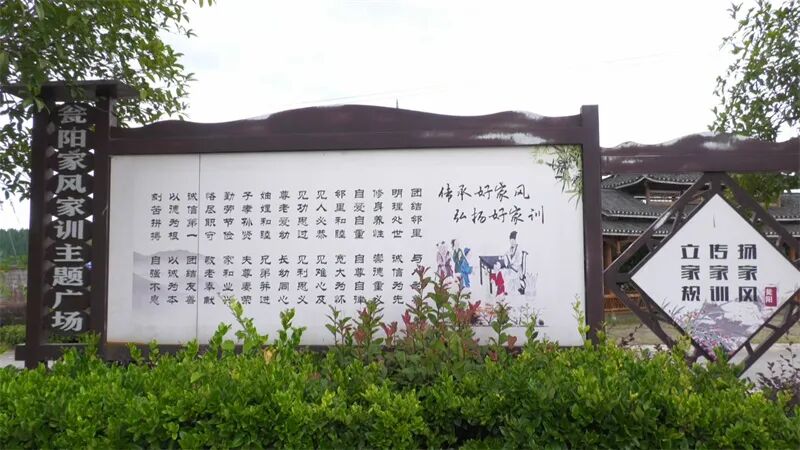 瓮阳家风家训主题广场
传承好家风
弘扬好家训
团结邻里 与
明理处世 诚信为先
修身养性 崇德重
自爱自重 自尊自律
邻里和睦 宽大为怀
见人必恭 见难心及
见功思过 见利思义
尊老爱幼 长幼同心
妯娌和睦 兄弟并进
子孝孙贤 夫尊妻荣
勤劳节俭 家和业兴
恪尽职守 敬老奉献
诚信第一 团结友善
以德为根 以诚为本
刻苦拼搏 自强不息
扬家风
传家训
立家规